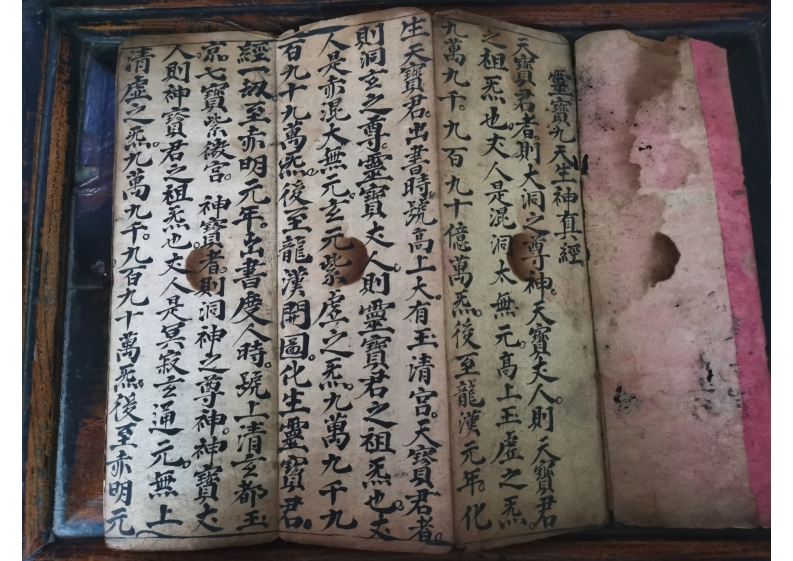 靈寶九天生神真經
天寶君者。則大洞之尊神。天寶丈人則天寶君
之祖炁也。丈人是混洞太無元。高上玉虛之炁
九萬九千。九百九十億萬炁。後至龍漢元年。化
生天寶君。出書時。號高上大有玉清宮。天寶君者。
則洞玄之尊。靈寶丈人則靈寶君之祖炁也。丈
人是赤混大無元。玄元紫虛之炁。九萬九千九
百九十九萬炁。後至龍漢開圖。化生靈寶君。
經一刼至赤明元年。出書度人時。號上清玄都玉
京七寶紫微宮。神寶者。則洞神之尊神。神寶丈
人則神寶君之祖炁也。丈人是冥寂玄通元無上
清虛之炁。九萬九千。九百九十萬炁。後至赤明元